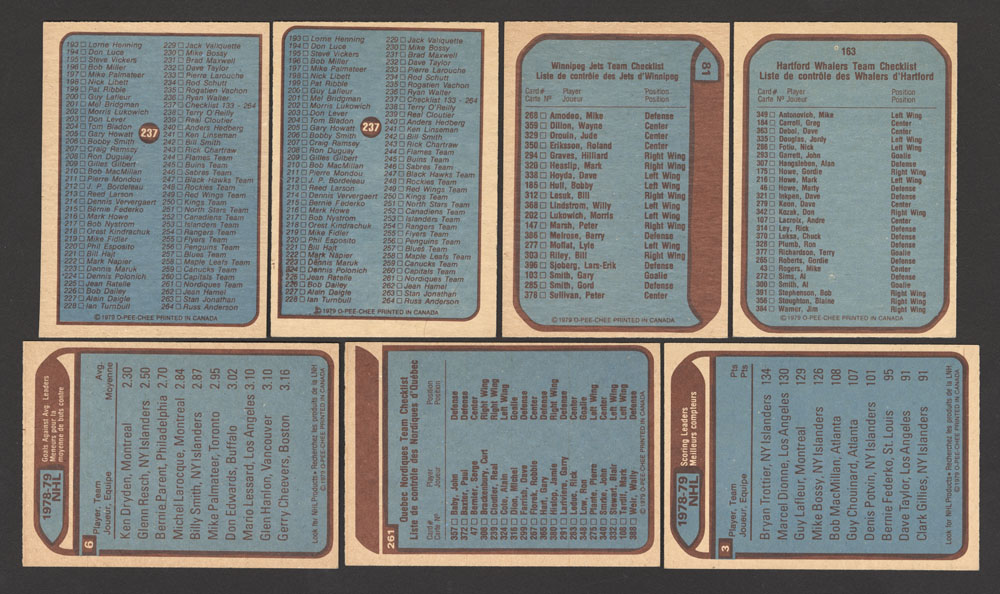 193 □ Lorne Henning
194 □ Don Luce
195 □ Steve Vickers
196 □ Bob Miller
197 □ Mike Palmateer
198 □ Nick Libett
199 □ Pat Ribble
200 □ Guy Lafleur
201 □ Mel Bridgman
202 □ Morris Lukowich
203 □ Don Lever
204 □ Tom Bladon
205 □ Gary Howatt
206 □ Bobby Smith
207 □ Craig Ramsay
208 □ Ron Duguay
209 □ Gilles Gilbert
210 □ Bob MacMillan
211 □ Pierre Mondou
212 □ J. P. Bordeleau
213 □ Reed Larson
214 □ Dennis Ververgaert
215 □ Bernie Federko
216 □ Mark Howe
217 □ Bob Nystrom
218 □ Orest Kindrachuk
219 □ Mike Fidler
220 □ Phil Esposito
221 □ Bill Hajt
222 □ Mark Napier
223 □ Dennis Maruk
224 □ Dennis Polonich
225 □ Jean Ratelle
226 □ Bob Dailey
227 □ Alain Daigle
228 □ Ian Turnbull
229 □ Jack Valiquette
230 □ Mike Bossy
231 □ Brad Maxwell
232 □ Dave Taylor
233 □ Pierre Larouche
234 □ Rod Schutt
235 □ Rogatien Vachon
236 □ Ryan Walter
237 □ Checklist 133 - 264
238 □ Terry O'Reilly
239 □ Real Cloutier
240 □ Anders Hedberg
241 □ Ken Linseman
242 □ Bill Smith
243 □ Rick Chartraw
244 □ Flames Team
245 □ Bruins Team
246 □ Sabres Team
247 □ Black Hawks Team
248 □ Rockies Team
249 □ Red Wings Team
250 □ Kings Team
251 □ North Stars Team
252 □ Canadiens Team
253 □ Islanders Team
254 □ Rangers Team
255 □ Flyers Team
256 □ Penguins Team
257 □ Blues Team
258 □ Maple Leafs Team
259 □ Canucks Team
260 □ Capitals Team
261 □ Nordiques Team
262 □ Jean Hamel
263 □ Stan Jonathan
264 □ Russ Anderson
237
© 1979 O-PEE-CHEE PRINTED IN CANADA
193 □ Lorne Henning
194 □ Don Luce
195 □ Steve Vickers
196 □ Bob Miller
197 □ Mike Palmateer
198 □ Nick Libett
199 □ Pat Ribble
200 □ Guy Lafleur
201 □ Mel Bridgman
202 □ Morris Lukowich
203 □ Don Lever
204 □ Tom Bladon
205 □ Gary Howatt
206 □ Bobby Smith
207 □ Craig Ramsay
208 □ Ron Duguay
209 □ Gilles Gilbert
210 □ Bob MacMillan
211 □ Pierre Mondou
212 □ J. P. Bordeleau
213 □ Reed Larson
214 □ Dennis Ververgaert
215 □ Bernie Federko
216 □ Mark Howe
217 □ Bob Nystrom
218 □ Orest Kindrachuk
219 □ Mike Fidler
220 □ Phil Esposito
221 □ Bill Hajt
222 □ Mark Napier
223 □ Dennis Maruk
224 □ Dennis Polonich
225 □ Jean Ratelle
226 □ Bob Dailey
227 □ Alain Daigle
228 □ Ian Turnbull
229 □ Jack Valiquette
230 □ Mike Bossy
231 □ Brad Maxwell
232 □ Dave Taylor
233 □ Pierre Larouche
234 □ Rod Schutt
235 □ Rogatien Vachon
236 □ Ryan Walter
237 □ Checklist 133 - 264
238 □ Terry O'Reilly
239 □ Real Cloutier
240 □ Anders Hedberg
241 □ Ken Linseman
242 □ Bill Smith
243 □ Rick Chartraw
244 □ Flames Team
245 □ Bruins Team
246 □ Sabres Team
247 □ Black Hawks Team
248 □ Rockies Team
249 □ Red Wings Team
250 □ Kings Team
251 □ North Stars Team
252 □ Canadiens Team
253 □ Islanders Team
254 □ Rangers Team
255 □ Flyers Team
256 □ Penguins Team
257 □ Blues Team
258 □ Maple Leafs Team
259 □ Canucks Team
260 □ Capitals Team
261 □ Nordiques Team
262 □ Jean Hamel
263 □ Stan Jonathan
264 □ Russ Anderson
237
© 1979 O-PEE-CHEE PRINTED IN CANADA
81
Winnipeg Jets Team Checklist
Liste de contrôle des Jets d'Winnipeg
Card# Player Position
Carte N° Joueur Position
268 □ Amodeo, Mike Defense
359 □ Dillon, Wayne Center
329 □ Drouin, Jude Center
350 □ Eriksson, Roland Center
294 □ Graves, Hilliard Right Wing
320 □ Heaslip, Mark Right Wing
338 □ Hoyda, Dave Left Wing
185 □ Hull, Bobby Left Wing
312 □ Lesuk, Bill Left Wing
368 □ Lindstrom, Willy Right Wing
202 □ Lukowich, Morris Left Wing
147 □ Marsh, Peter Right Wing
386 □ Melrose, Barry Defense
277 □ Moffat, Lyle Left Wing
303 □ Riley, Bill Right Wing
396 □ Sjoberg, Lars-Erik Defense
103 □ Smith, Gary Goalie
285 □ Smith, Gord Defense
378 □ Sullivan, Peter Center
© 1979 O-PEE-CHEE PRINTED IN CANADA
163
Hartford Whalers Team Checklist
Liste de contrôle des Whalers d'Hartford
Card # Player Position
Carte N° Joueur Position
349 □ Antonovich, Mike Left Wing
184 □ Carroll, Greg Center
363 □ Debol, Dave Center
335 □ Douglas, Jordy Left Wing
286 □ Fotiu, Nick Left Wing
293 □ Garrett, John Goalie
309 □ Hangsleben, Alan Defense
175 □ Howe, Gordie Right Wing
216 □ Howe, Mark Left Wing
46 □ Howe, Marty Defense
321 □ Inkpen, Dave Defense
279 □ Keon, Dave Center
342 □ Kozak, Don Right Wing
107 □ Lacroix, Andre Center
314 □ Ley, Rick Defense
370 □ Luksa, Chuck Defense
328 □ Plumb, Ron Defense
377 □ Richardson, Terry Goalie
265 □ Roberts, Gordie Defense
43 □ Rogers, Mike Center
272 □ Sims, Al Defense
300 □ Smith, Al Goalie
391 □ Stephenson, Bob Right Wing
356 □ Stoughton, Blaine Right Wing
384 □ Warner, Jim Right Wing
© 1979 O-PEE-CHEE PRINTED IN CANADA
1978-79
NHL
Goals Against Avg. Leaders
Meneurs pour la
moyenne de buts contre
6
Player, Team Avg.
Joueur, Equipe Moyenne
Ken Dryden, Montreal 2.30
Glenn Resch, NY Islanders 2.50
Bernie Parent, Philadelphia 2.70
Michel Larocque, Montreal 2.84
Billy Smith, NY Islanders 2.87
Mike Palmateer, Toronto 2.95
Don Edwards, Buffalo 3.02
Mario Lessard, Los Angeles 3.10
Glen Hanlon, Vancouver 3.10
Gerry Cheevers, Boston 3.16
Look for NHL Products • Recherchez les produits de la LNH
© 1979 O-PEE-CHEE PRINTED IN CANADA
261
Quebec Nordiques Team Checklist
Liste de contrôle des Nordiques d'Québec
Card# Player Position
Carte N° Joueur Position
357 □ Baby, John Defense
372 □ Baxter, Paul Defense
47 □ Bernier, Serge Center
□ Brackenbury, Curt Right Wing
239 □ Cloutier, Real Right Wing
□ Dion, Michel Goalie
299 □ Farrish, Dave Defense
□ Ftorek, Robbie Center
□ Hart, Gary Defense
□ Hislop, Jamie Right Wing
□ Lariviere, Garry Defense
□ Leduc, Rich Center
□ Low, Ron Goalie
275 □ Plante, Pierre Right Wing
□ Smrke, John Left Wing
□ Stewart, Blair Left Wing
108 □ Tardif, Marc Left Wing
388 □ Weir, Wally Defense
© 1979 O-PEE-CHEE PRINTED IN CANADA
1978-79
NHL
Scoring Leaders
Meilleurs compteurs
3
Player, Team Pts
Joueur, Equipe Pts
Bryan Trottier, NY Islanders 134
Marcel Dionne, Los Angeles 130
Guy Lafleur, Montreal 129
Mike Bossy, NY Islanders 126
Bob MacMillan, Atlanta 108
Guy Chouinard, Atlanta 107
Denis Potvin, NY Islanders 101
Bernie Federko, St. Louis 95
Dave Taylor, Los Angeles 91
Clark Gillies, NY Islanders 91
Look for NHL Products • Recherchez les produits de la LNH
© 1979 O-PEE-CHEE PRINTED IN CANADA